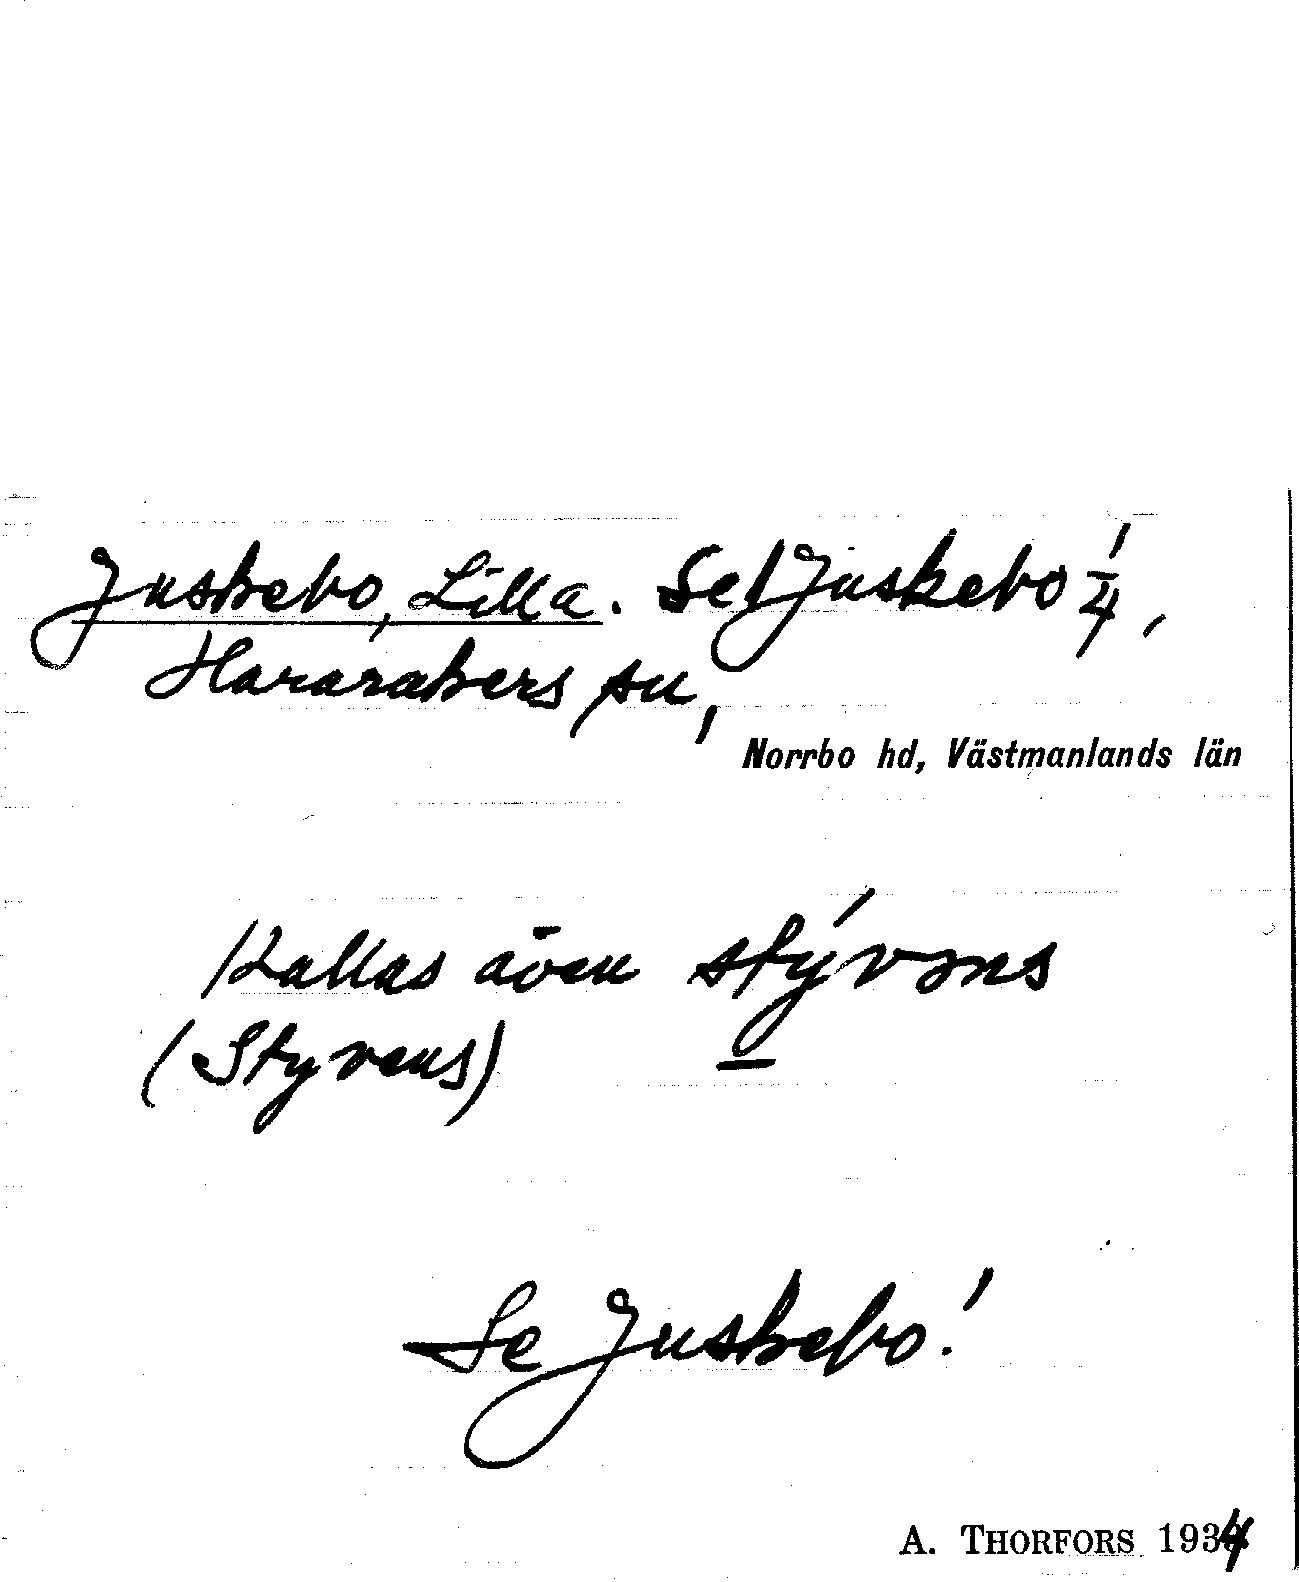 Juskebo, Lilla. Se! Juskebo 1/4,
Haraakers sn,
Norrbo hd, Västmanlands län
Kallas även stývəns
(Styvens)
Se Juskebo!
A. THORFORS 1934